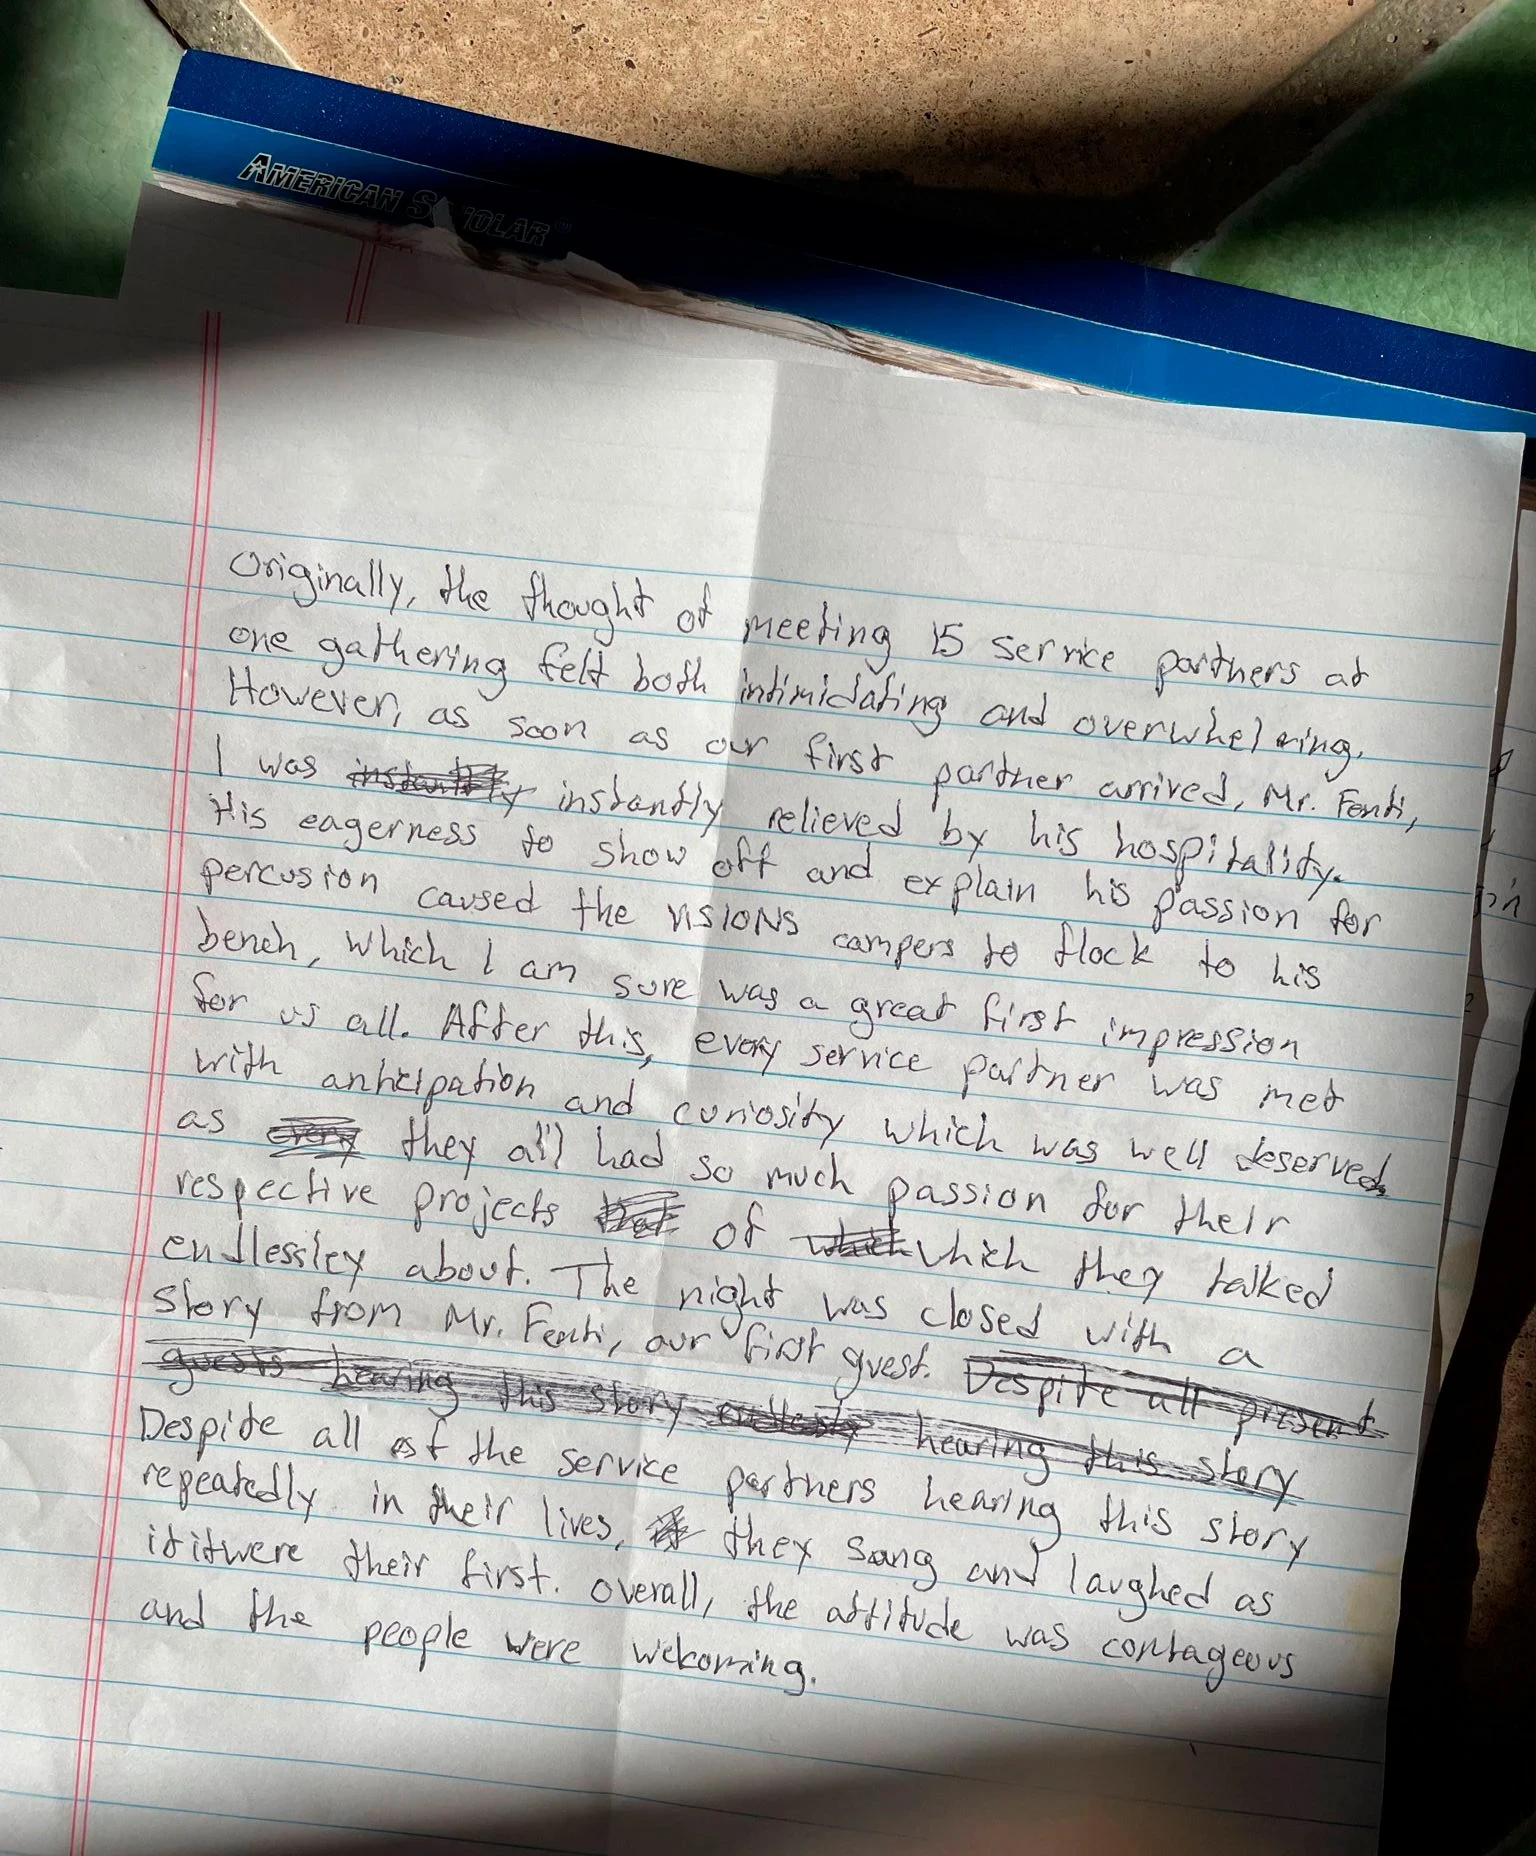 AMERICAN SCHOLAR
Originally, the thought of meeting 15 service partners at
one gathering felt both intimidating and overwhelming.
However, as soon as our first partner arrived, Mr. Fenti,
I was instantly instantly relieved by his hospitality.
His eagerness to show off and explain his passion for
percusion caused the VISIONS campers to flock to his
bench, which I am sure was a great first impression
for us all. After this, every service partner was met
with anticipation and curiosity which was well deserved
as every they all had so much passion for their
respective projects that of which which they talked
endlessley about. The night was closed with a
story from Mr. Fenti, our first guest. Despite all present
guests hearing this story endlessly hearing this story
Despite all of the service partners hearing this story
repeatedly in their lives, they sang and laughed as
if it were their first. Overall, the attitude was contageous
and the people were welcoming.